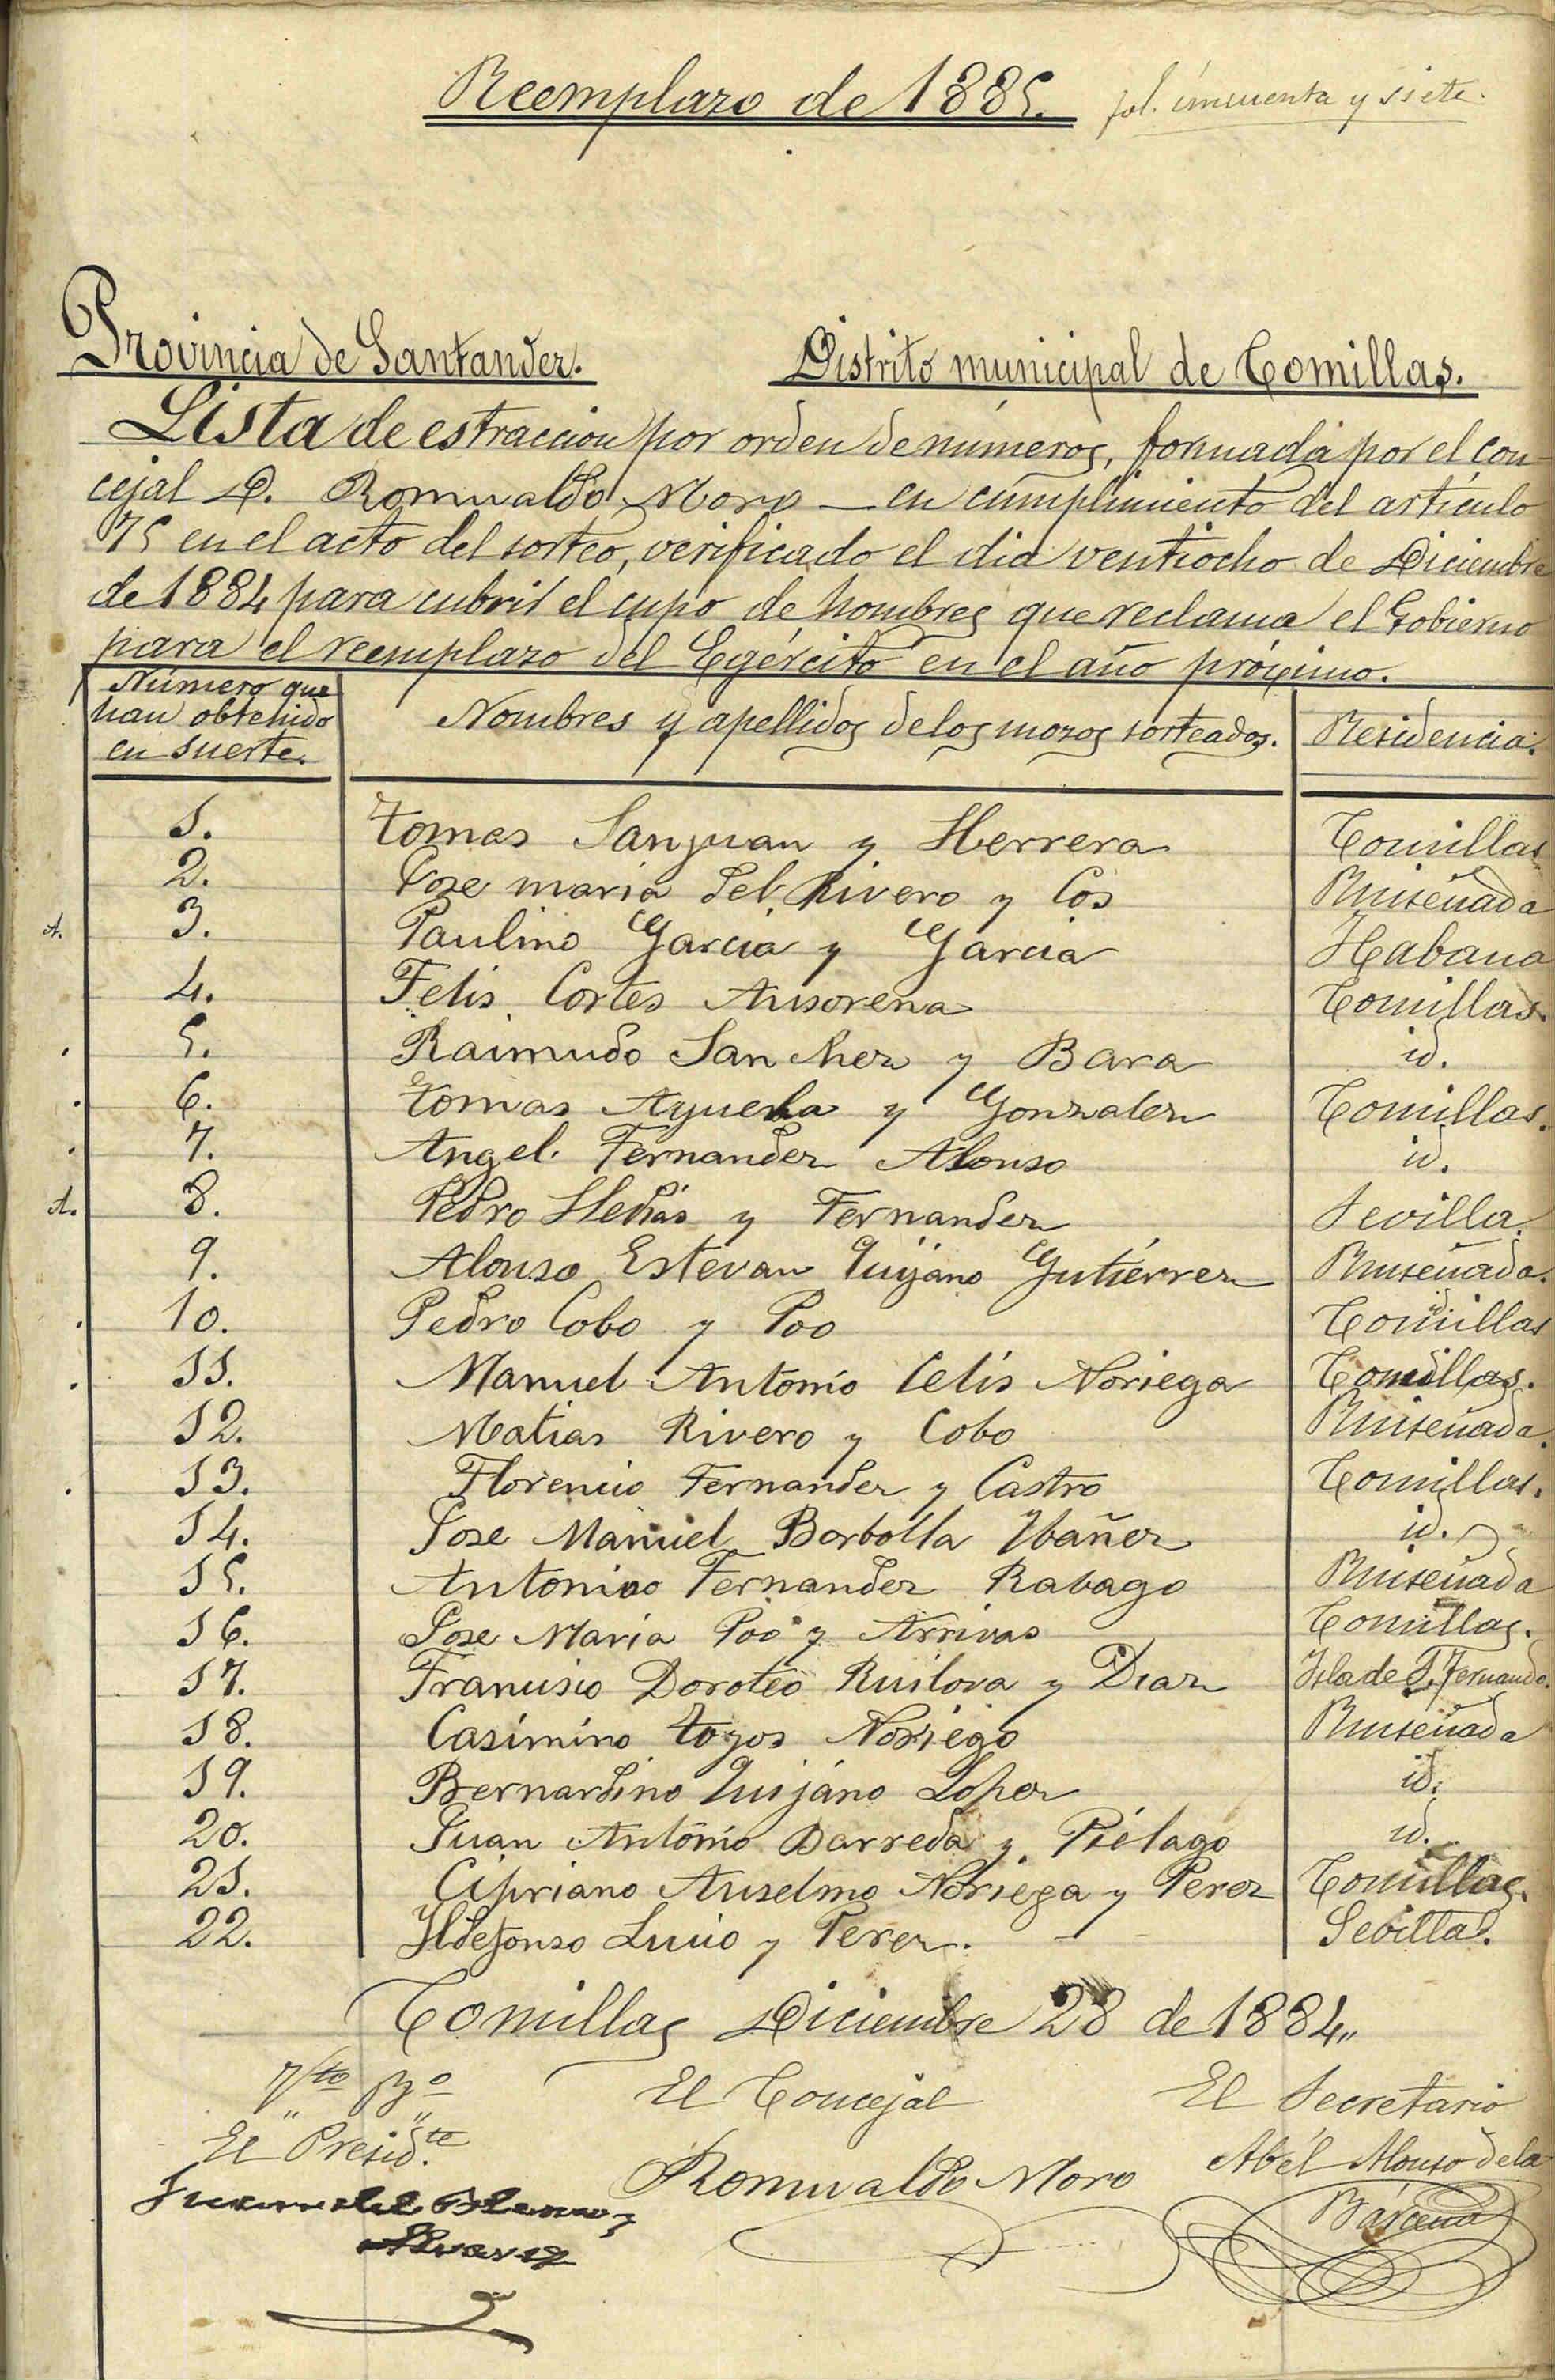 Reemplazo de 1885. fol. cincuenta y siete.
Provincia de Santander. Distrito municipal de Comillas.
Lista de estraccion por orden de números, formada por el con-
cejal D. Romualdo Moro — en cumplimiento del artículo
75 en el acto del sorteo, verificado el dia ventiocho de Diciembre
de 1884 para cubrir el cupo de hombres que reclama el Gobierno
para el reemplazo del Egército en el año próximo.
Número que
han obtenido
en suerte. Nombres y apellidos de los mozos sorteados. Residencia.
1. Tomas Sanjuan y Herrera Comillas
2. Jose maria del Rivero y Cos Ruiseñada
A. 3. Paulino Garcia y Garcia Habana
4. Felis Cortes Ansorena Comillas
5. Raimudo Sanchez y Bara id.
6. Tomas Ayuela y Gonzalez Comillas.
7. Angel Fernandez Alonso id.
A. 8. Pedro y Fernandez Sevilla.
9. Alonso Estevan Quijano Gutiérrez Ruiseñada.
10. Pedro Cobo y Poo Comillas
11. Manuel Antonio Celis Noriega Comillas.
12. Matias Rivero y Cobo Ruiseñada.
13. Florencio Fernandez y Castro Comillas.
14. Jose Manuel Borbolla Ybañez id.
15. Antonio Fernandez Rabago Ruiseñada
16. Jose Maria Poo y Arrivas Comillas.
17. Francisio Doroteo Ruilova y Diaz Isla de S. Fernando.
18. Casimino Toyos Noriego Ruiseñada
19. Bernardino Quijáno Lopez id.
20. Juan António Barreda y Piélago id.
21. Cipriano Anselmo Noriega y Perez Comillas.
22. Ildefonso Lucio y Perez. Sebilla.
Comillas Diciembre 28 de 1884,,
Vto Bo El Concejal El Secretario
El Presidte
Romualdo Moro Abél Alonso de la
Juan del y Bárcena
Alvarez